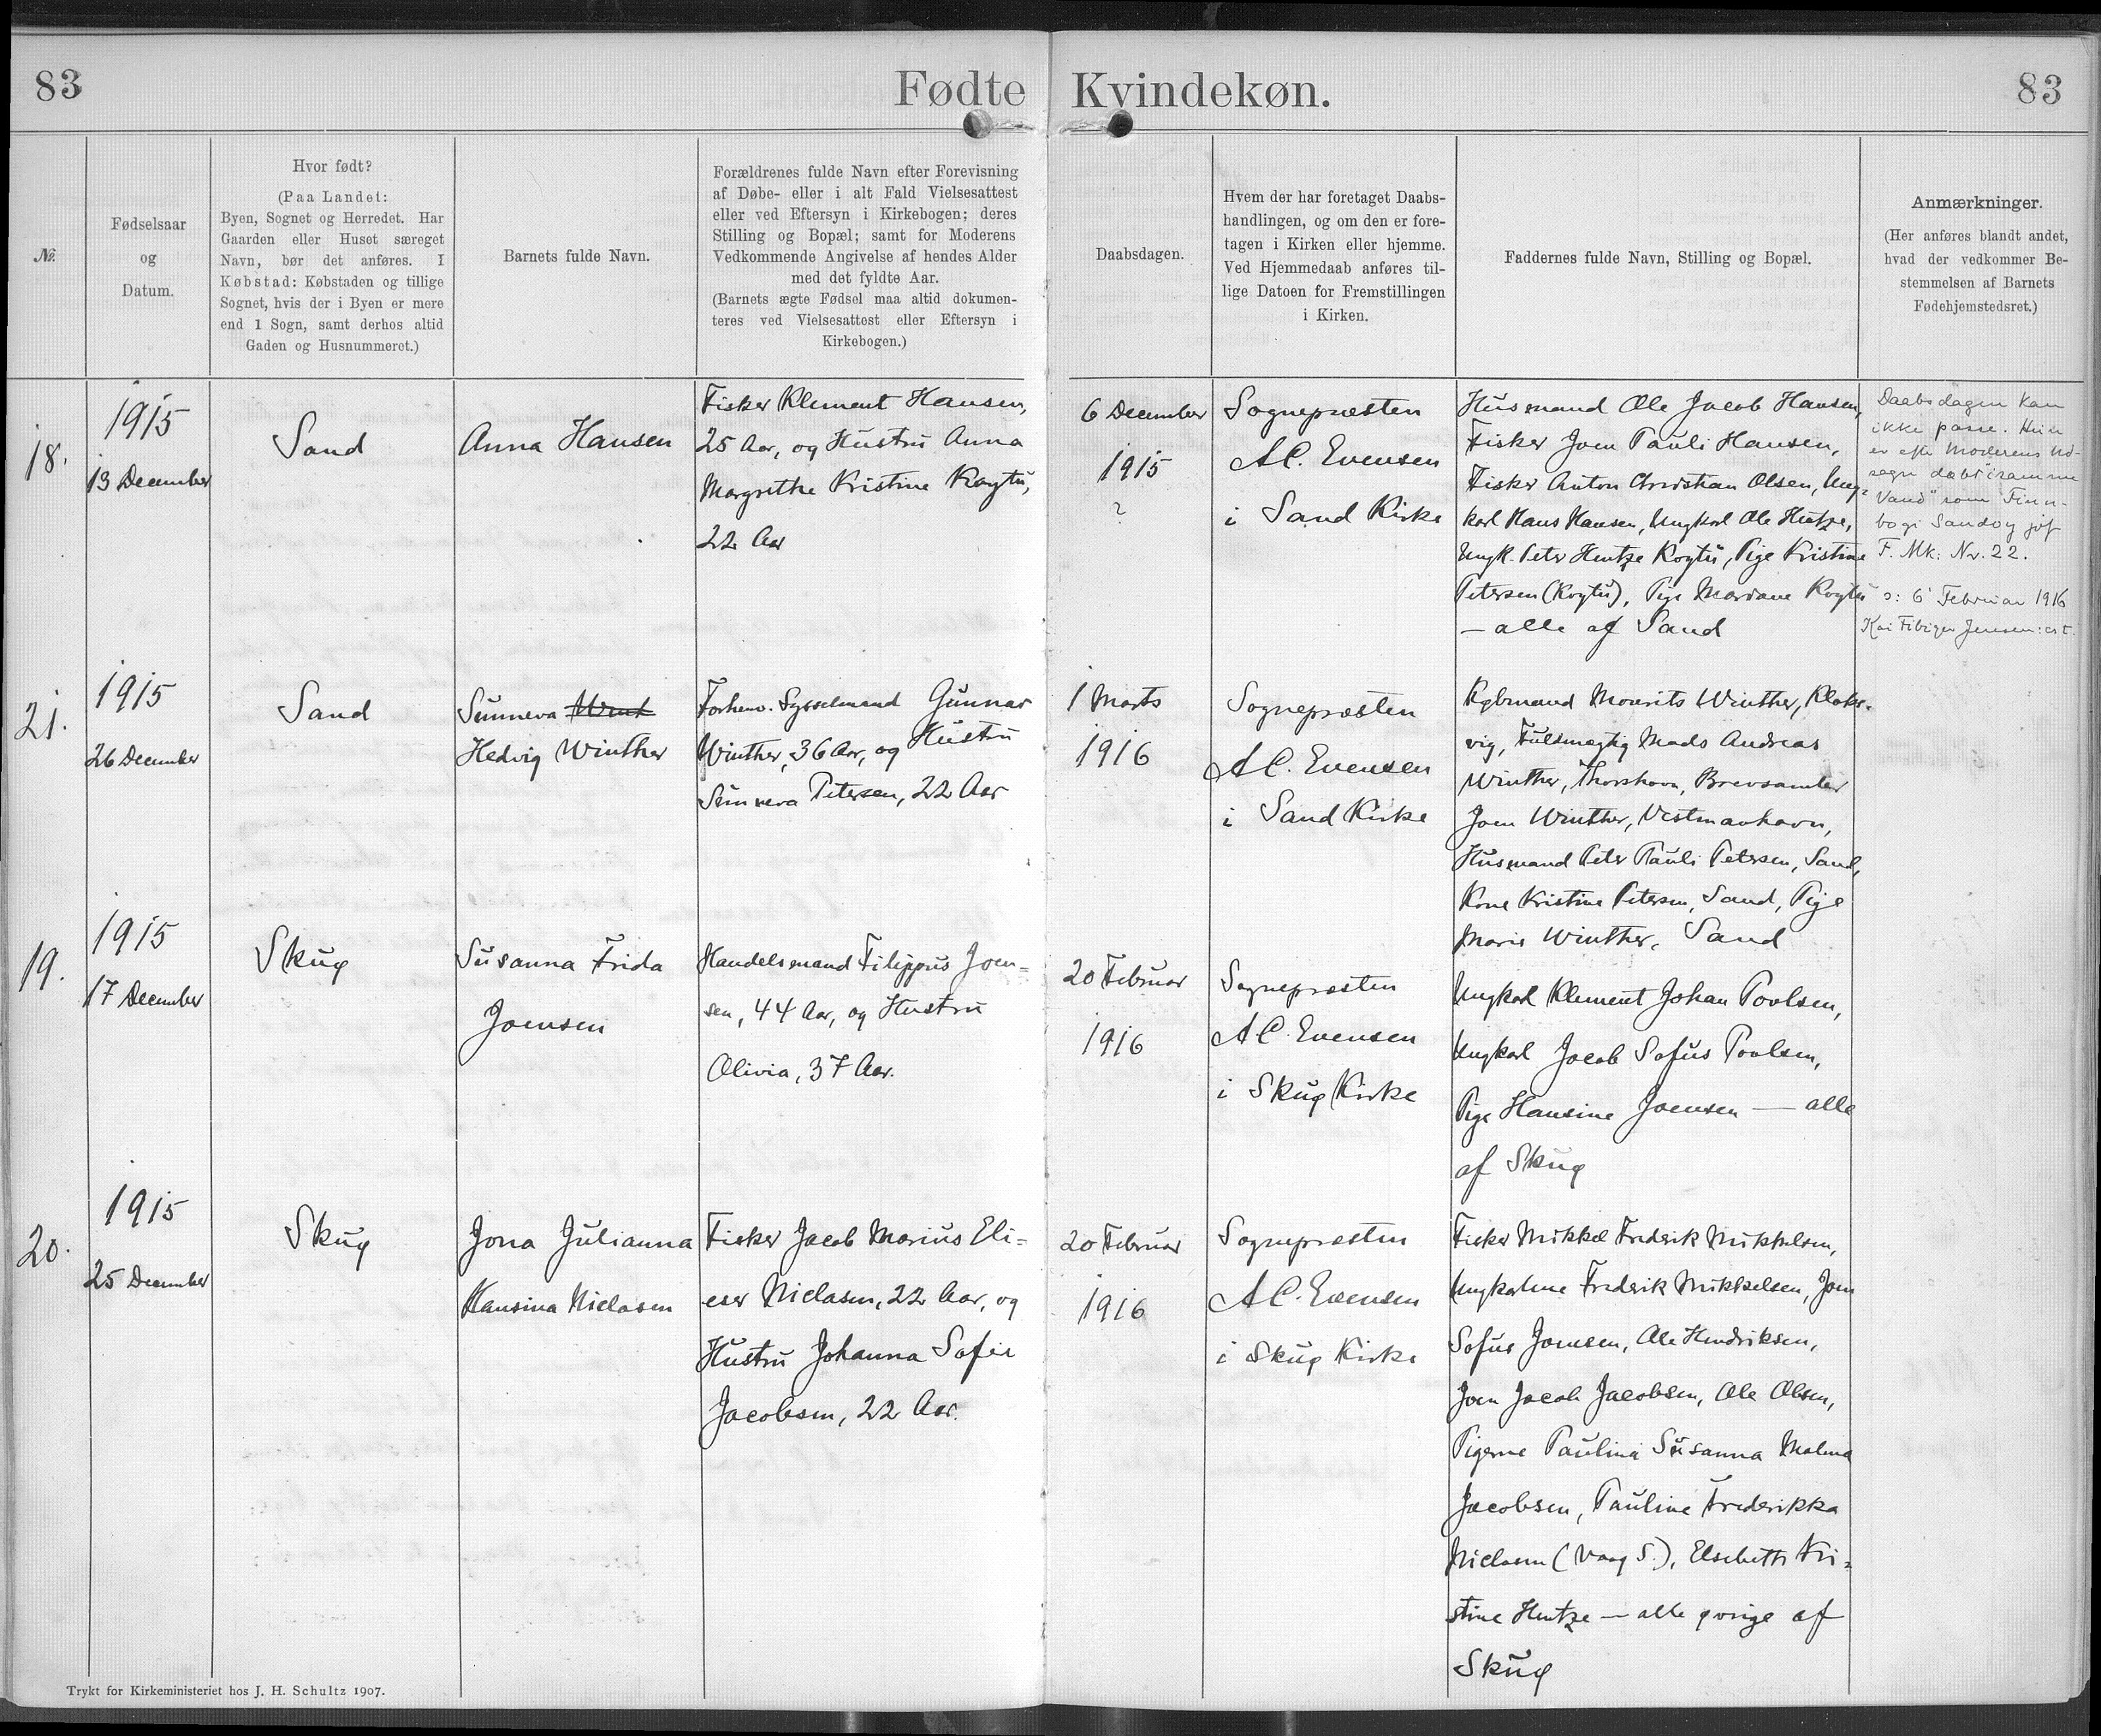 83
Fødte Kvindekøn.
83
№.
Fødselsaar
og
Datum.
Hvor født?
(Paa Landet:
Byen, Sognet og Herredet. Har
Gaarden eller Huset særeget
Navn, bør det anføres. I
Købstad: Købstaden og tillige
Sognet, hvis der i Byen er mere
end 1 Sogn, samt derhos altid
Gaden og Husnummeret.)
Barnets fulde Navn.
Forældrenes fulde Navn efter Forevisning
af Døbe- eller i alt Fald Vielsesattest
eller ved Eftersyn i Kirkebogen; deres
Stilling og Bopæl; samt for Moderens
Vedkommende Angivelse af hendes Alder
med det fyldte Aar.
(Barnets ægte Fødsel maa altid dokumen-
teres ved Vielsesattest eller Eftersyn i
Kirkebogen.)
Daabsdagen.
Hvem der har foretaget Daabs-
handlingen, og om den er fore-
tagen i Kirken eller hjemme.
Ved Hjemmedaab anføres til-
lige Datoen for Fremstillingen
i Kirken.
Faddernes fulde Navn, Stilling og Bopæl.
Anmærkninger.
(Her anføres blandt andet,
hvad der vedkommer Be-
stemmelsen af Barnets
Fødehjemstedsret.)
18.
1915
13 December
Sand
Anna Hansen
Fisker Klement Hansen,
25 Aar, og Hustru Anna
Margrethe Kristine Køgtu,
22 Aar
6 December
1915
?
Sognepræsten
A.C. Evensen
i Sand Kirke
Husmand Ole Jacob Hansen,
Fisker Joen Pauli Hansen,
Fisker Anton Christian Olsen, Ung-
karl Hans Hansen, Ungkarl Ole Hentze,
Ungk. Peter Hentze Køgtu, Pige Kristine
Petersen (Køgtu), Pige Mariane Køgtu
— alle af Sand
Daabsdagen kan
ikke passe. Hun
er efter Moderens Ud-
sagn døbt "i samme
Vand" som Finn-
bogi Sandoy jvf
F. Mk: Nr. 22.
ɔ: 6' Februar 1916
Kai Fibiger Jensen: est.
21.
1915
26 December
Sand
Sunneva Wint
Hedvig Winther
Forhenv. Sysselmand Gunnar
Winther, 36 Aar, og Hustru
Sunneva Petersen, 22 Aar
1 Marts
1916
Sognepræsten
A.C. Evensen
i Sand Kirke
Købmand Mourits Winther, Klaks-
vig, Fuldmægtig Mads Andreas
Winther, Thorshavn, Brevsamler
Joen Winther, Vestmanhavn,
Husmand Peter Pauli Petersen, Sand,
Kone Kristine Petersen, Sand, Pige
Marie Winther, Sand
19.
1915
17 December
Skug
Susanna Frida
Joensen
Handelsmand Filippus Joen-
sen, 44 Aar, og Hustru
Olivia, 37 Aar.
20 Februar
1916
Sognepræsten
A.C. Evensen
i Skug Kirke
Ungkarl Klement Johan Poulsen,
Ungkarl Jacob Sofus Poulsen,
Pige Hansine Joensen — alle
af Skug
20.
1915
25 December
Skug
Jona Julianna
Hansina Niclasen
Fisker Jacob Marius Eli-
eser Niclasen, 22 Aar, og
Hustru Johanna Sofie
Jacobsen, 22 Aar.
20 Februar
1916
Sognepræsten
A.C. Evensen
i Skug Kirke
Fisker Mikkel Frederik Mikkelsen,
Ungkarlene Frederik Mikkelsen, Joen
Sofus Joensen, Ole Hendriksen,
Joen Jacob Jacobsen, Ole Olsen,
Pigerne Paulina Susanna Malena
Jacobsen, Pauline Frederikka
Niclasen (Vaag S.), Elsebeth Kri-
stine Hentze — alle øvrige af
Skug
Trykt for Kirkeministeriet hos J. H. Schultz 1907.